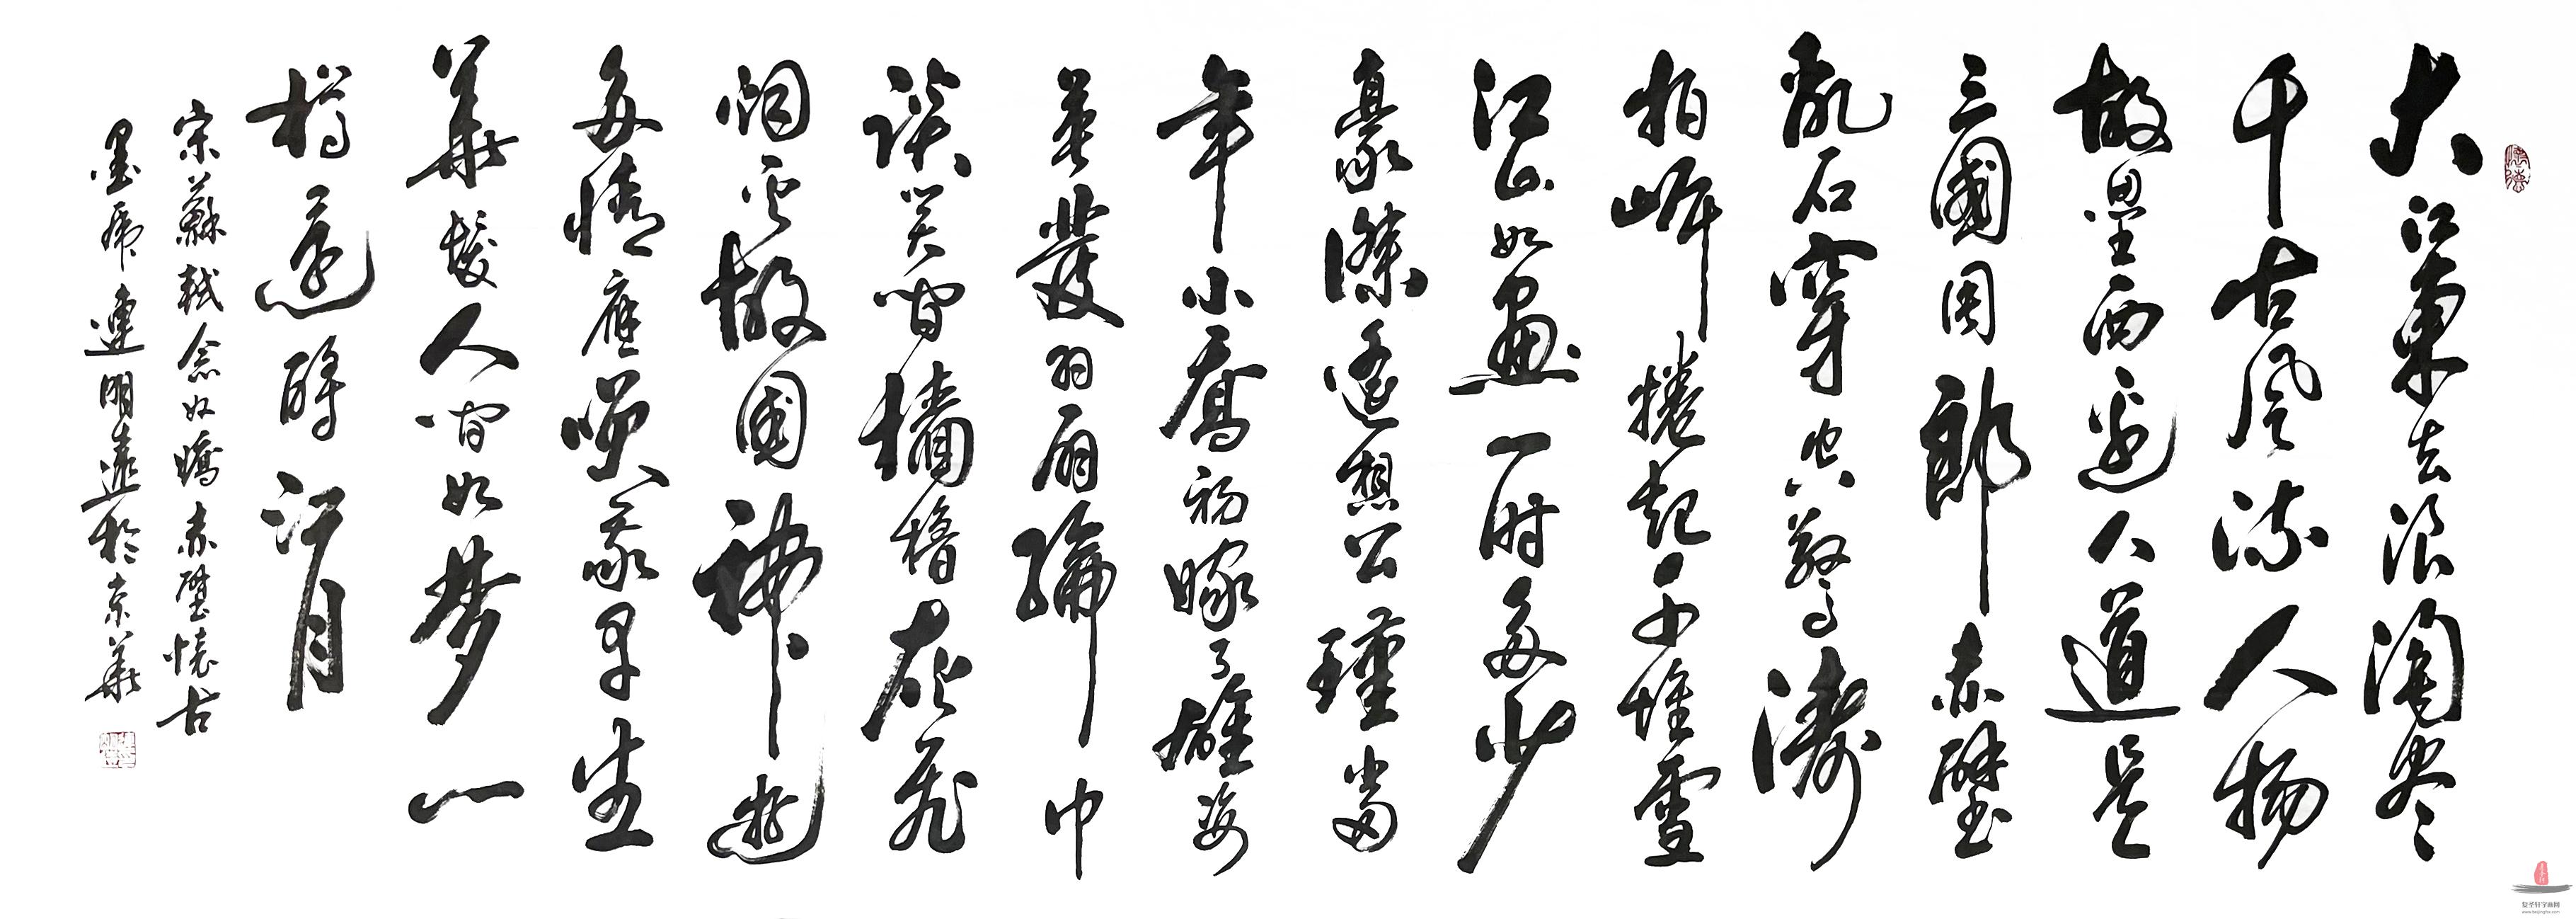 大江東去浪淘尽
千古風流人物
故壘西邊人道是
三國周郎赤壁
亂石穿空驚濤
拍岸捲起千堆雪
江山如畫一時多少
豪傑遙想公瑾當
年小喬初嫁了雄姿
英發羽扇綸巾
談笑間檣櫓灰飛
烟云故國神遊
多情應咲我早生
華髮人間如夢一
樽還酹江月
宋蘇軾念奴嬌赤壁懷古
墨連明遠於京華